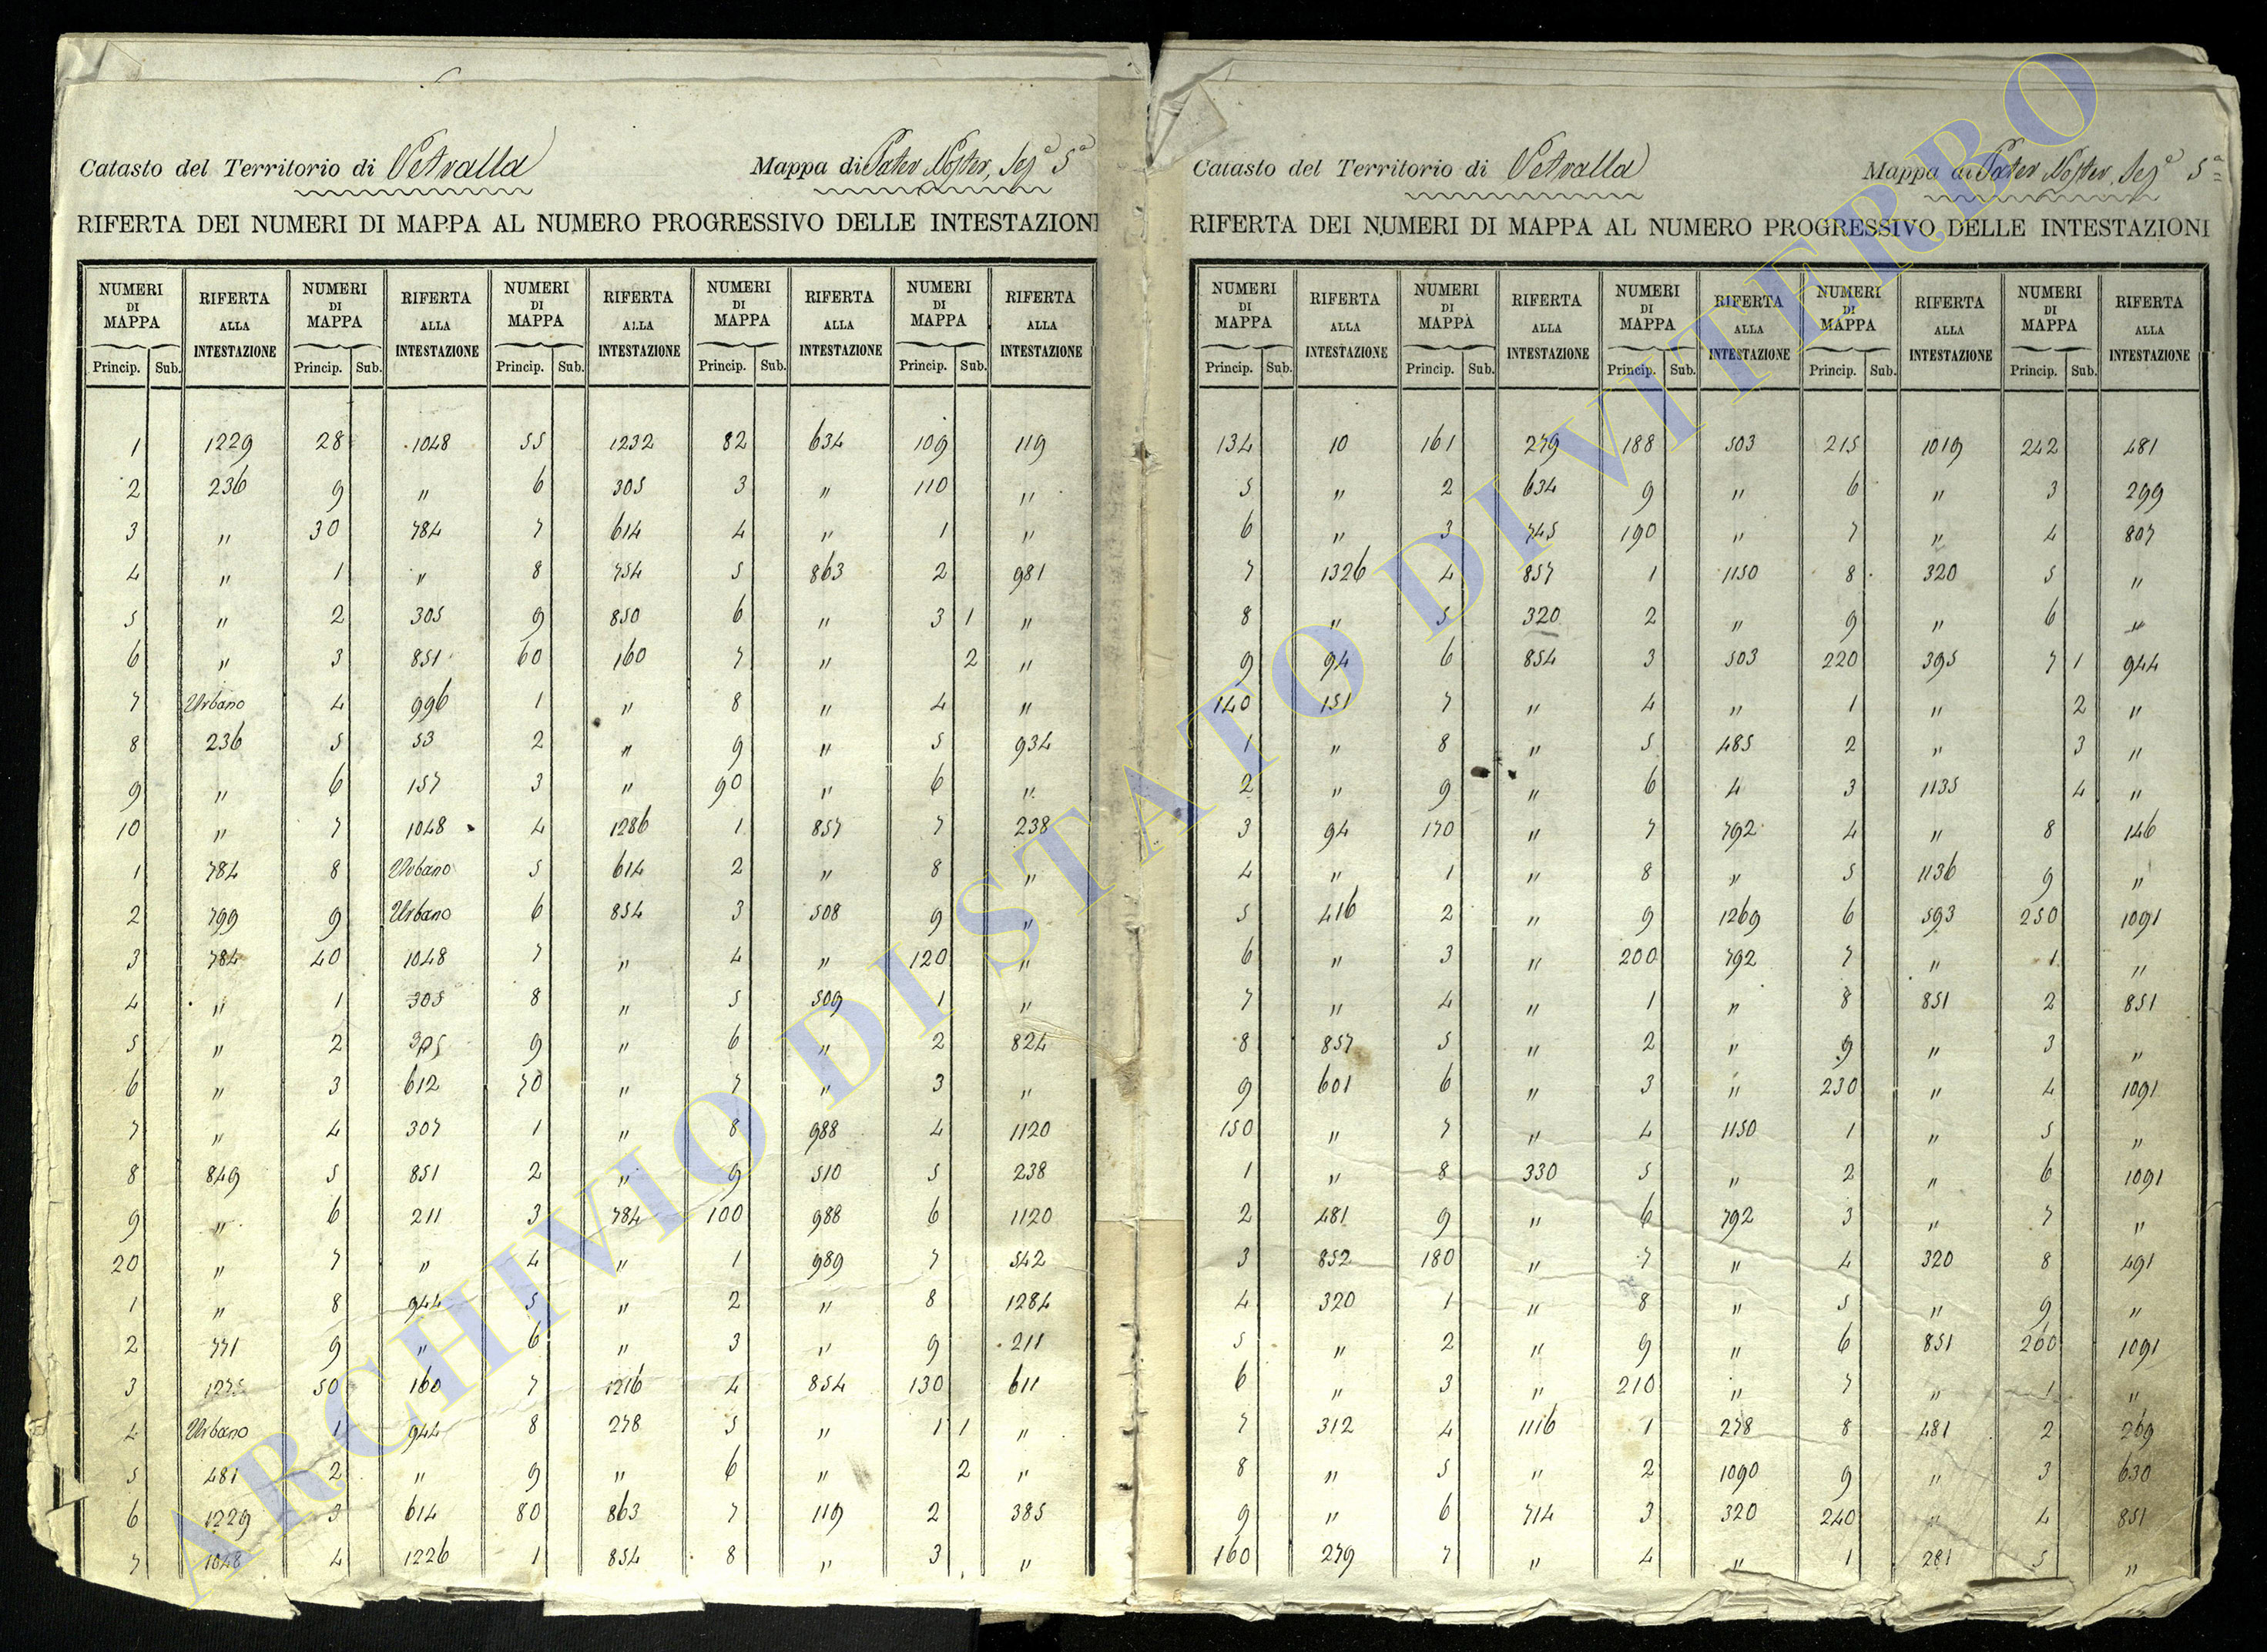 Catasto del Territorio di Vetralla Mappa di Pater Noster, Sezᵉ 5ª
RIFERTA DEI NUMERI DI MAPPA AL NUMERO PROGRESSIVO DELLE INTESTAZIONI
NUMERI DI MAPPA RIFERTA ALLA INTESTAZIONE NUMERI DI MAPPA RIFERTA ALLA INTESTAZIONE NUMERI DI MAPPA RIFERTA ALLA INTESTAZIONE NUMERI DI MAPPA RIFERTA ALLA INTESTAZIONE NUMERI DI MAPPA RIFERTA ALLA INTESTAZIONE
Princip. Sub. Princip. Sub. Princip. Sub. Princip. Sub. Princip. Sub.
1 1229 28 1048 55 1232 82 634 109 119
2 236 9 " 6 305 3 " 110 "
3 " 30 784 7 614 4 " 1 "
4 " 1 " 8 754 5 863 2 981
5 " 2 305 9 850 6 " 3 1 "
6 " 3 851 60 160 7 " 2 "
7 Urbano 4 996 1 " 8 " 4 "
8 236 5 53 2 " 9 " 5 934
9 " 6 157 3 " 90 " 6 "
10 " 7 1048 4 1286 1 857 7 238
1 784 8 Urbano 5 614 2 " 8 "
2 799 9 Urbano 6 854 3 508 9 "
3 784 40 1048 7 " 4 " 120 "
4 " 1 305 8 " 5 509 1 "
5 " 2 305 9 " 6 " 2 824
6 " 3 612 70 " 7 " 3 "
7 " 4 307 1 " 8 988 4 1120
8 849 5 851 2 " 9 510 5 238
9 " 6 211 3 784 100 988 6 1120
20 " 7 " 4 " 1 989 7 542
1 " 8 944 5 " 2 " 8 1284
2 771 9 " 6 " 3 " 9 211
3 1275 50 160 7 1216 4 854 130 611
4 Urbano 1 944 8 278 5 " 1 1 "
5 481 2 " 9 " 6 " 2 "
6 1229 3 614 80 863 7 119 2 385
7 1048 4 1226 1 854 8 " 3 "
Catasto del Territorio di Vetralla Mappa di Pater Noster, Sezᵉ 5ª
RIFERTA DEI NUMERI DI MAPPA AL NUMERO PROGRESSIVO DELLE INTESTAZIONI
NUMERI DI MAPPA RIFERTA ALLA INTESTAZIONE NUMERI DI MAPPA RIFERTA ALLA INTESTAZIONE NUMERI DI MAPPA RIFERTA ALLA INTESTAZIONE NUMERI DI MAPPA RIFERTA ALLA INTESTAZIONE NUMERI DI MAPPA RIFERTA ALLA INTESTAZIONE
Princip. Sub. Princip. Sub. Princip. Sub. Princip. Sub. Princip. Sub.
134 10 161 279 188 503 215 1019 242 481
5 " 2 634 9 " 6 " 3 299
6 " 3 745 190 " 7 " 4 807
7 1326 4 857 1 1150 8 320 5 "
8 " 5 320 2 " 9 " 6 "
9 94 6 854 3 503 220 395 7 1 944
140 151 7 " 4 " 1 " 2 "
1 " 8 " 5 485 2 " 3 "
2 " 9 " 6 4 3 1135 4 "
3 94 170 " 7 792 4 " 8 146
4 " 1 " 8 " 5 1136 9 "
5 416 2 " 9 1269 6 593 250 1091
6 " 3 " 200 792 7 " 1 "
7 " 4 " 1 " 8 851 2 851
8 857 5 " 2 " 9 " 3 "
9 601 6 " 3 " 230 " 4 1091
150 " 7 " 4 1150 1 " 5 "
1 " 8 330 5 " 2 " 6 1091
2 481 9 " 6 792 3 " 7 "
3 852 180 " 7 " 4 320 8 491
4 320 1 " 8 " 5 " 9 "
5 " 2 " 9 " 6 851 260 1091
6 " 3 " 210 " 7 " 1 "
7 312 4 1116 1 278 8 481 2 269
8 " 5 " 2 1090 9 " 3 630
9 " 6 714 3 320 240 " 4 851
160 279 7 " 4 " 1 281 5 "
ARCHIVIO DI STATO DI VITERBO